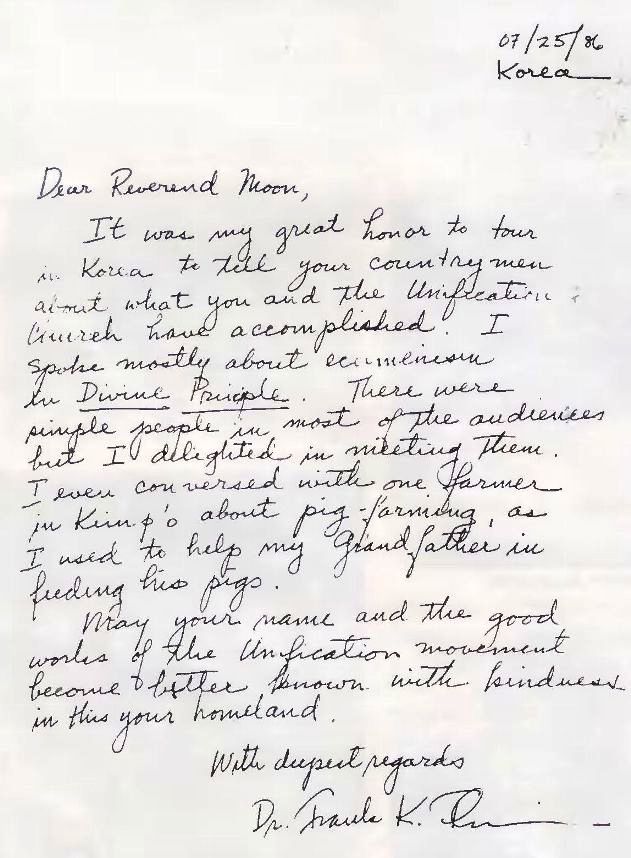 07/25/86
Korea
Dear Reverend Moon,
It was my great honor to tour
in Korea to tell your countrymen
about what you and the Unification
Church have accomplished. I
spoke mostly about ecumenism
in Divine Principle. There were
simple people in most of the audiences
but I delighted in meeting them.
I even conversed with one farmer
in Kimp'o about pig-farming, as
I used to help my Grandfather in
feeding his pigs.
May your name and the good
works of the Unification movement
become better known with kindness
in this your homeland.
With deepest regards
Dr. Frank K.